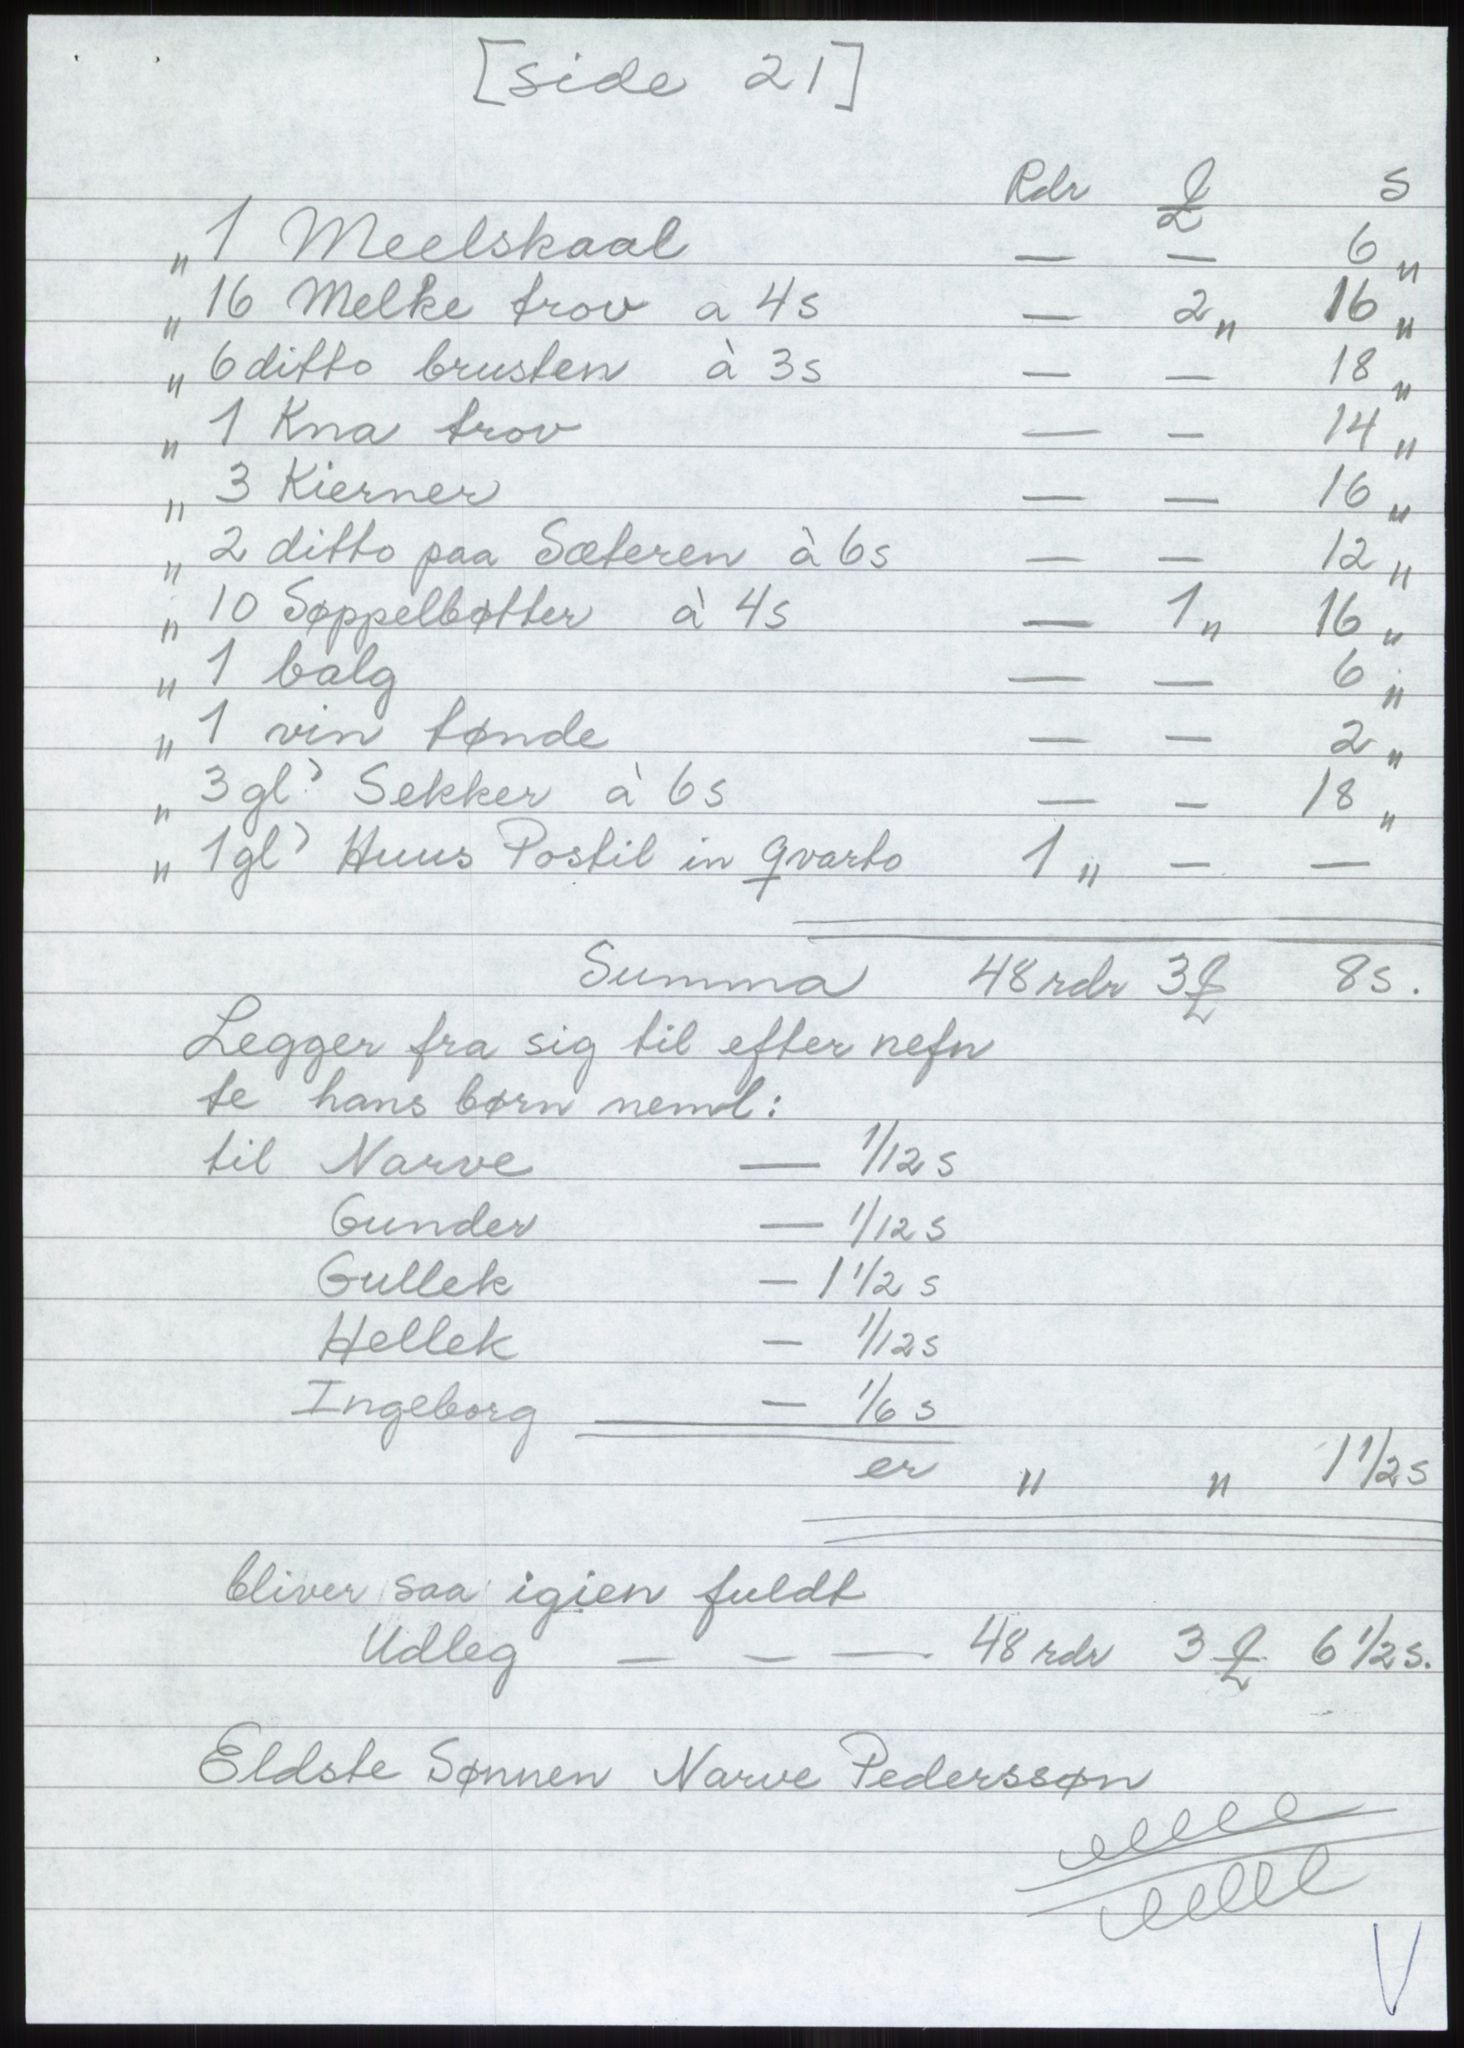 [side 21]
Rdr ℔ s
„ 1 Meelskaal — — 6 „
„ 16 Melke trov a 4s — 2 „ 16 „
„ 6 ditto brusten à 3s — — 18 „
„ 1 Kna trov — — 14 „
„ 3 Kierner — — 16 „
„ 2 ditto paa Sæteren à 6s — — 12 „
„ 10 Søppelbøtter à 4s — 1 „ 16 „
„ 1 balg — — 6 „
„ 1 vin tønde — — 2 „
„ 3 gl? Sekker à 6s — — 18 „
„ 1 gl? Huus Postil in qvarto 1 „ — —
Summa 48 rdr 3 ℔ 8s.
Legger fra sig til efter nefn
te hans børn neml:
til Narve — 1/12 s
Gunder — 1/12 s
Gullek — 1 1/2 s
Hellek — 1/12 s
Ingeborg — 1/6 s
er „ „ 1 1/2 s
bliver saa igien fuldt
Udleg — — — 48 rdr 3 ℔ 6 1/2 s.
Eldste Sønnen Narve Pederssøn